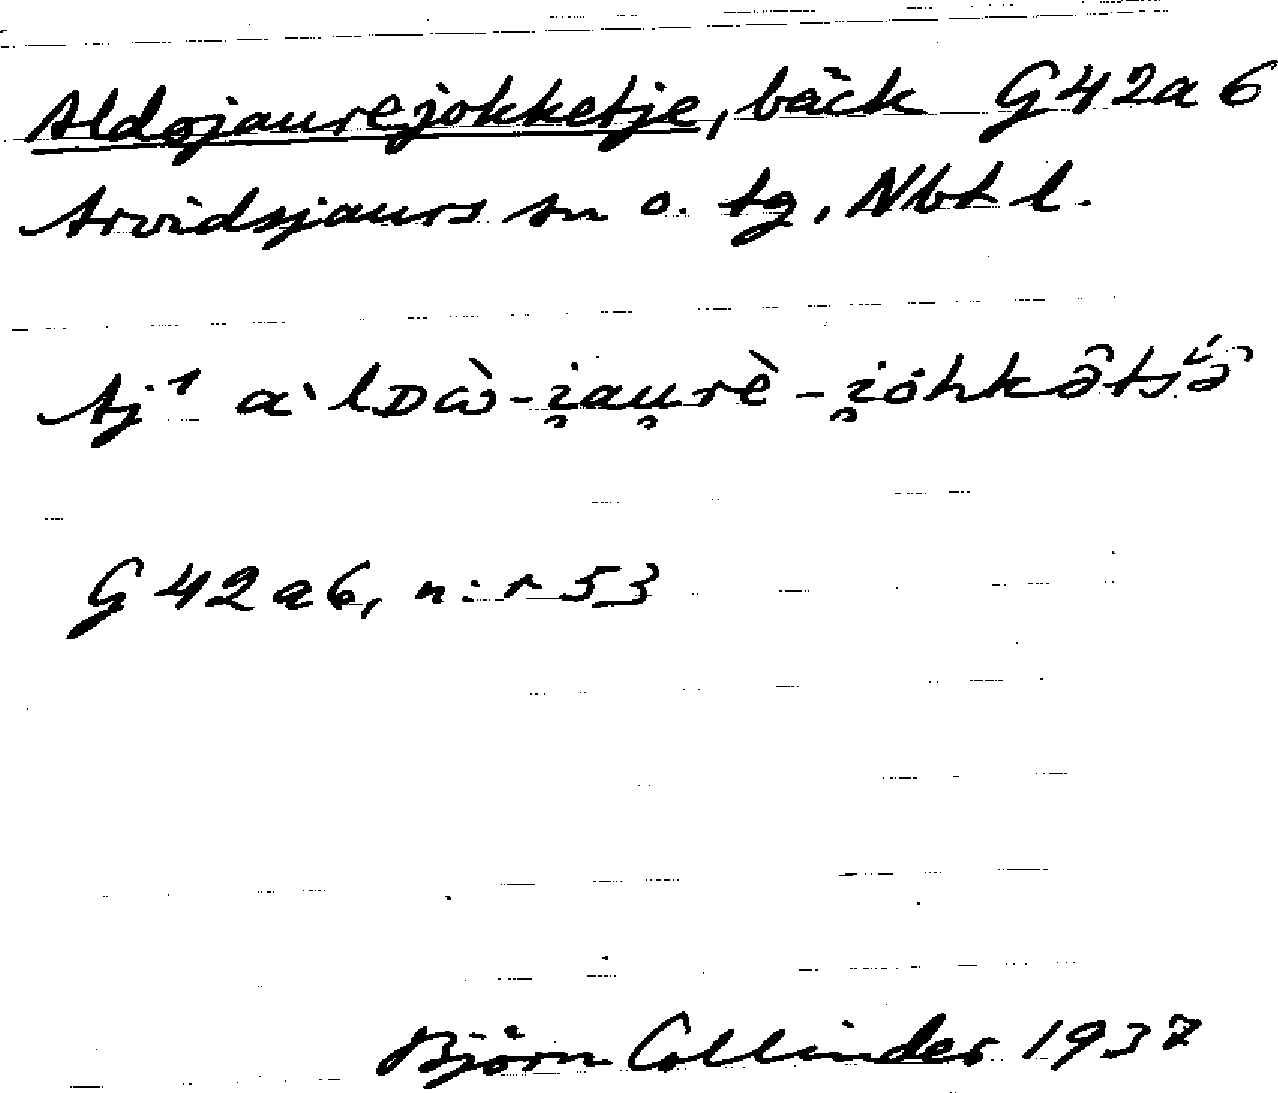 Aldojaurejokketje, bäck G42a6
Arvidsjaurs sn o. tg, Nbt l.
Aj¹ a`lᴅὼ-i̯au̯rè-i̯ȯhkə̑tsə̑́
G42a6, n:r 53
Björn Collinder 1937